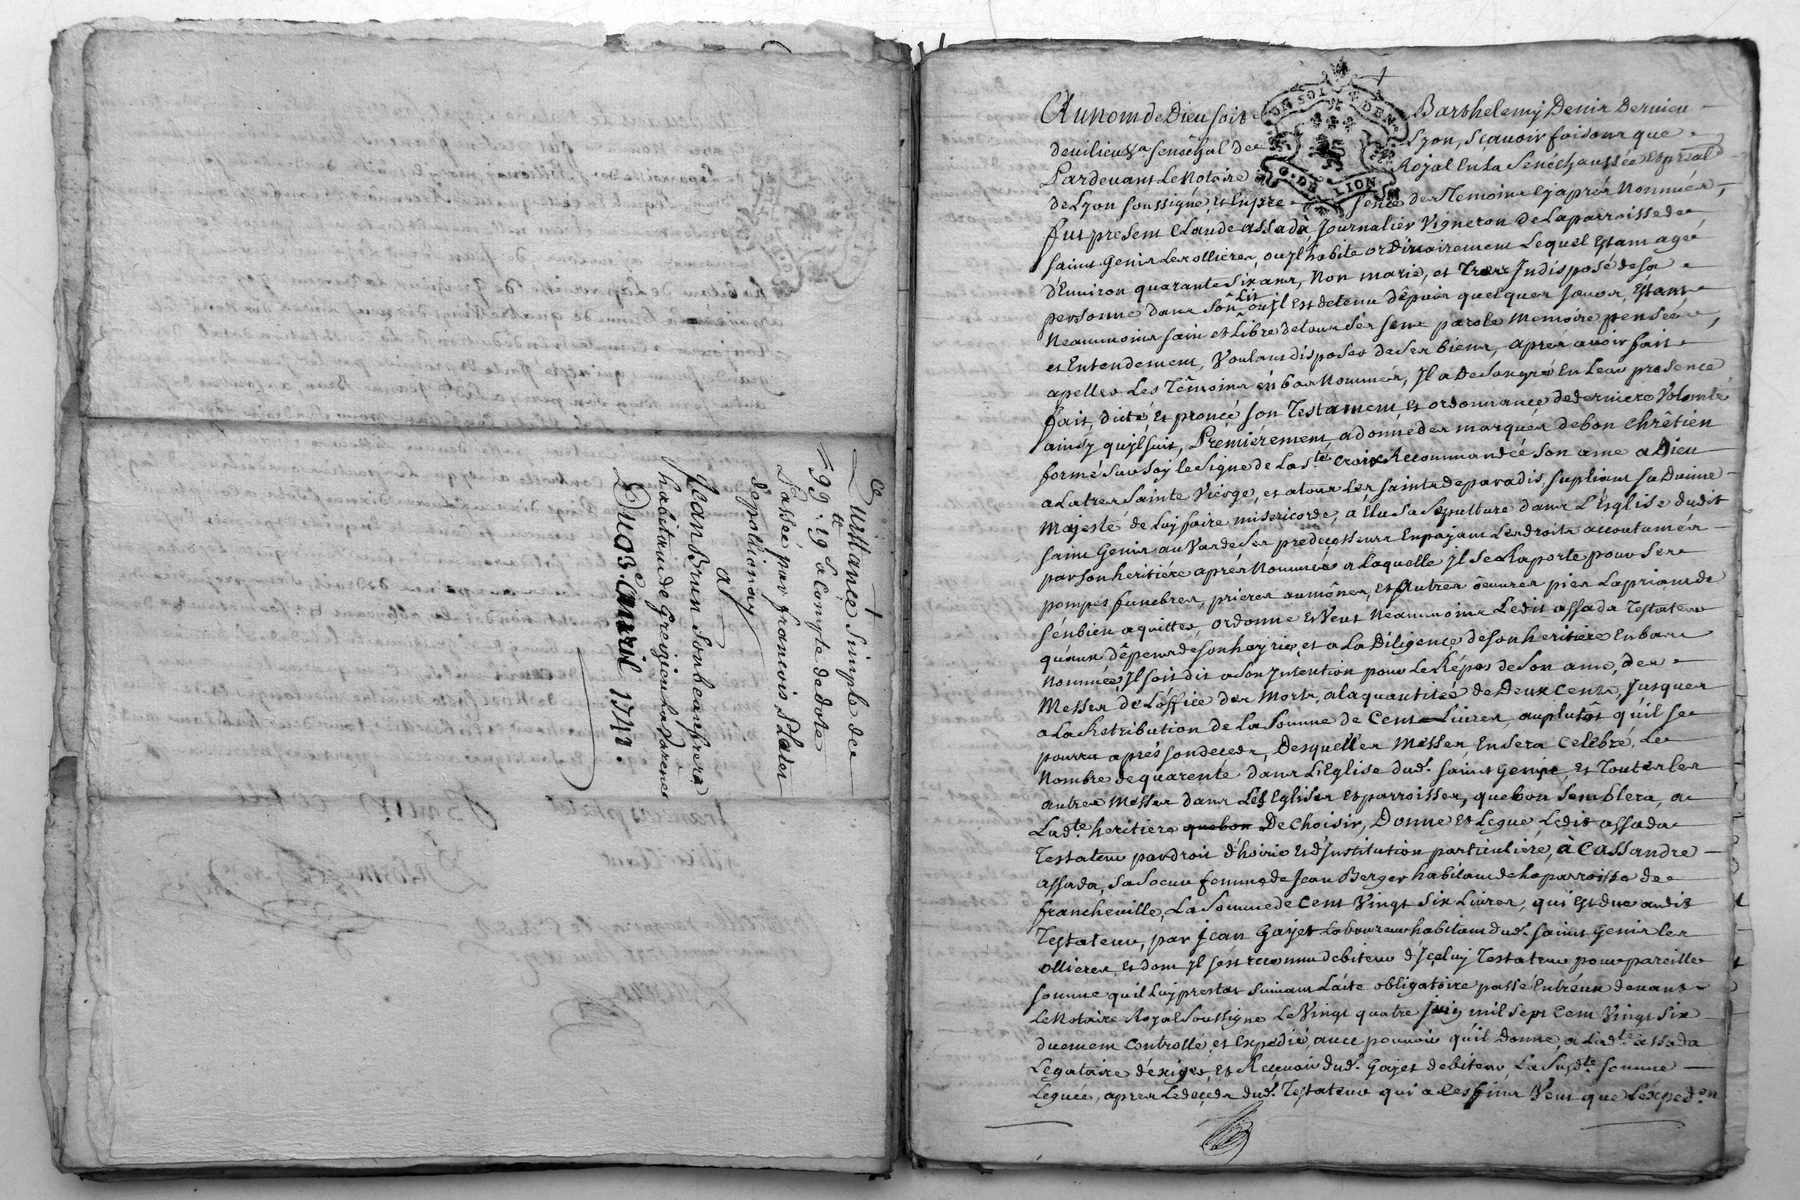 Quittance Simple de
199.lt 19.s a Compte de dote
Passée par francois Plater
depollionay
a
Jean Brun Son beaufrere
habitant de Greizieu La Varene
Du 03.e Avril 1742.
UN SOL 4 DEN
G. DE LION
Au nom de Dieu soit Barthelemy Denis Deruieu
deuilieu sa. senechal de Lyon, sçavoir faisons que
Pardevant Le Notaire Royal En La Sénéchaussée et preal
de Lyon soussigné, et En presence des Temoins Cy apres Nommés,
fut present Claude assada, Journalier Vigneron de La parroisse de
saint Genis Les ollieres, ou Jl habite ordinairement Lequel Estant agé
d'Environ quarante Six ans, Non marié, et Tres Jndisposé de sa
personne dans Son Lit ou Jl Est detenu dépuis quelques Jours, Estant
Neanmoins sain et Libre de tous Ses sens parole memoire pensée
et Entendement, Voulant disposer de Ses biens, apres avoir fait
apeller Les Témoins en bas Nommés, Jl a De Son gré En Leur presence
fait, dicté, et proncé son Testament et ordonnance de derniere Volonté
ainsy qu'jl suit, Premiérement a donné des marques de bon chrêtien
formé sur Soy le Signe de La S.te Croix Recommandé Son ame a Dieu
a La tres Sainte Viérge, et a tous Les saints de paradis, supliant Sa Divine
Majesté de Luy faire misericorde, a Elu Sa Sepulture dans L'Eglise dudit
saint Genis au Vas de Ses predecesseurs En payant Les droits accoutumés
par son heritiére aprés Nommée a laquelle Jl Se Raporte pour Ses
pompes funebres, prieres aumônes, et Autres oeuvres pies La priant de
s'en bien aquitter, ordonne et Veut Neanmoins Ledit assada Testateur
qu'aux dépens de Son hoyrie, et a La Diligence de Son heritiére En bas
Nommée, Jl soit dit a Son Jntention pour Le Répos de Son ame, des
Messes de L'office des Morts, a la quantité de Deux Cents, Jusques
a La Retribution de La Somme de Cent Livres, au plutôt qu'il se
pourra aprés Son decéds, Desquelles Messes En Sera Célébré, Le
Nombre de quarente dans L'Eglise dud. saint Genis, et Toutes les
autres Messes dans Les Eglises et parroisses, que bon Semblera, a
Lad.te heritiere que bon De Choisir, Donne et Legue Ledit assada
Testateur par droit d'hoirie et d'Institution particuliére, à Cassandre
assada, Sa Soeur femme de Jean Berger habitant de La parroisse de
francheville, La Somme de Cent Vingt Six Livres, qui Est due audit
Testateur, par Jean Gayet Laboureur habitant dud. saint Genis Les
ollieres, et dont Jl s'est reconnu debiteur d'Jceluy Testateur pour pareille
somme qu'il Luy prestat suivant L'acte obligatoire passé Entréux devant
Le Notaire Royal Soussigne Le Vingt quatre Juin mil Sept Cent Vingt Six
duement Controllé, et Expedié, avec pouvoir qu'il Donne, a Lad.te assada
Légataire d'éxiger, et Recevoir dud. Gayet debiteur, La Susd.te somme
Leguée, apres Le deceds dud. Testateur qui a Ces fins Veut que L'exped.on